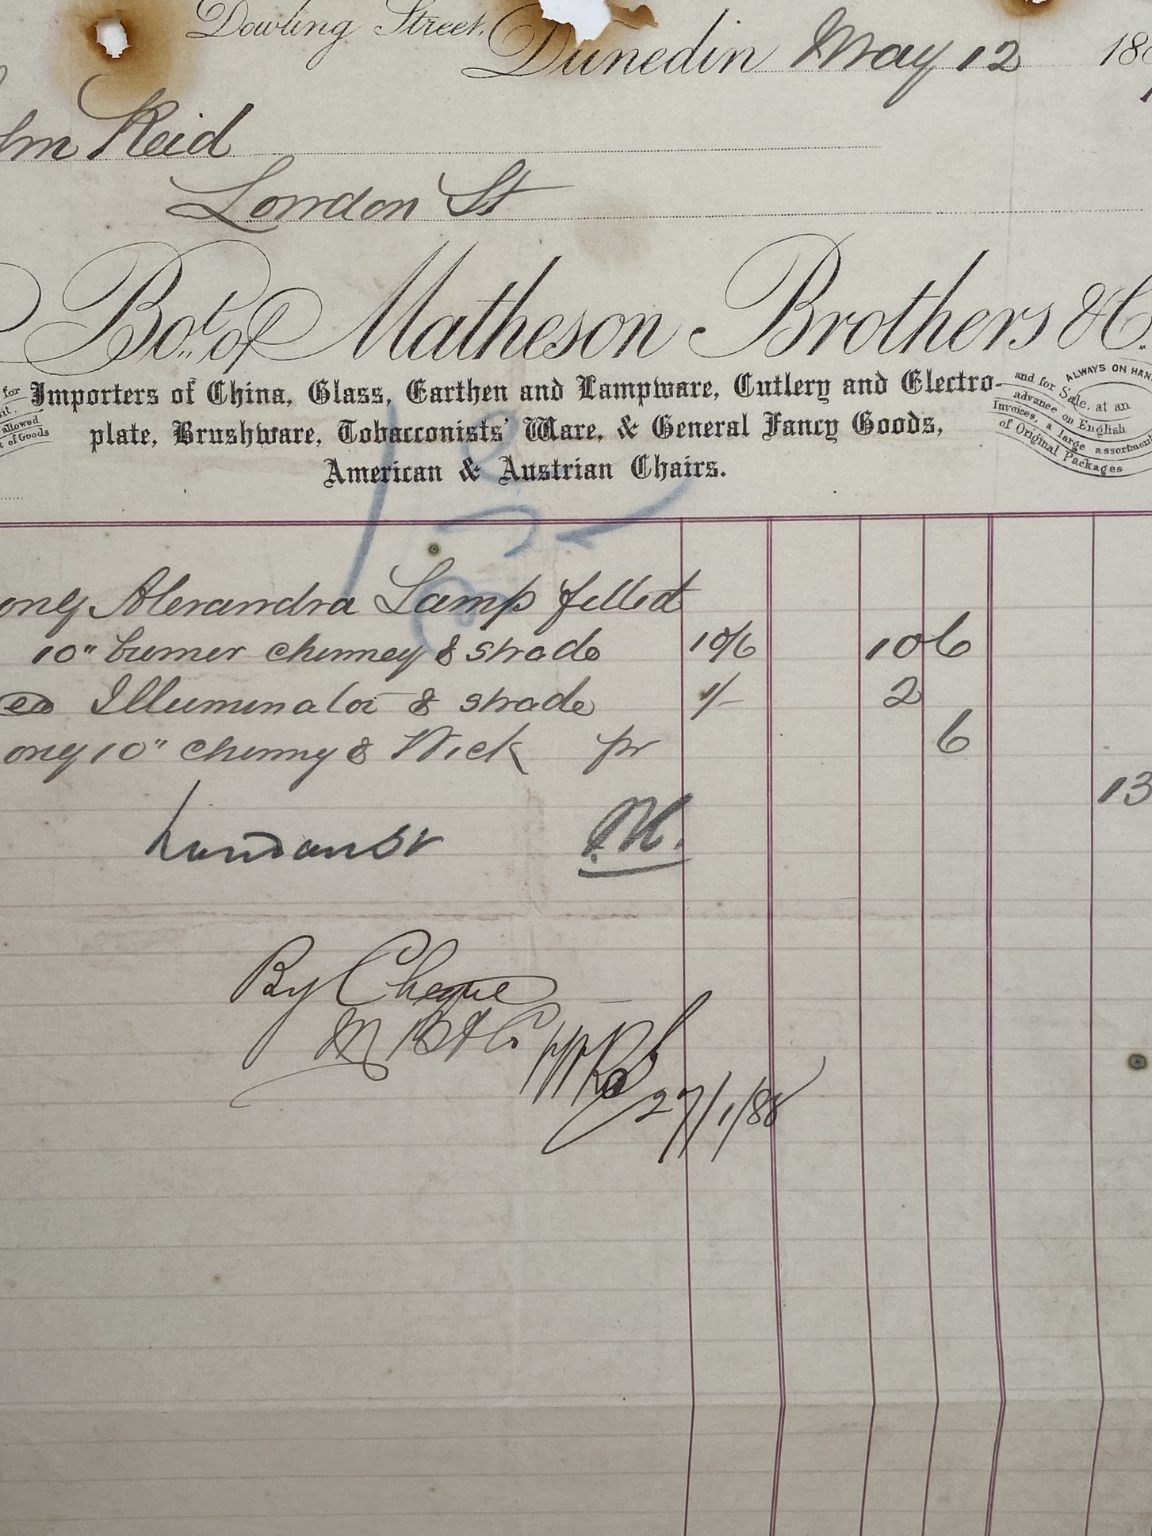 Dowling Street,
Dunedin May 12 188
Reid
London St
Bot. of Matheson Brothers & C
Importers of China, Glass, Earthen and Lampware, Cutlery and Electro-
plate, Brushware, Tobacconists' Ware, & General Fancy Goods,
American & Austrian Chairs.
for
allowed
of Goods
ALWAYS ON HAN
and for Sale, at an
advance on English
Invoices, a large assortment
of Original Packages
only Alexandra Lamp filled
10" burner chimney & shade 10/6 10 6
Illuminator & shade 1/- 2
only 10" chimny & Wick pr 6
13
London St
By Cheque
M B & Co
27/1/88